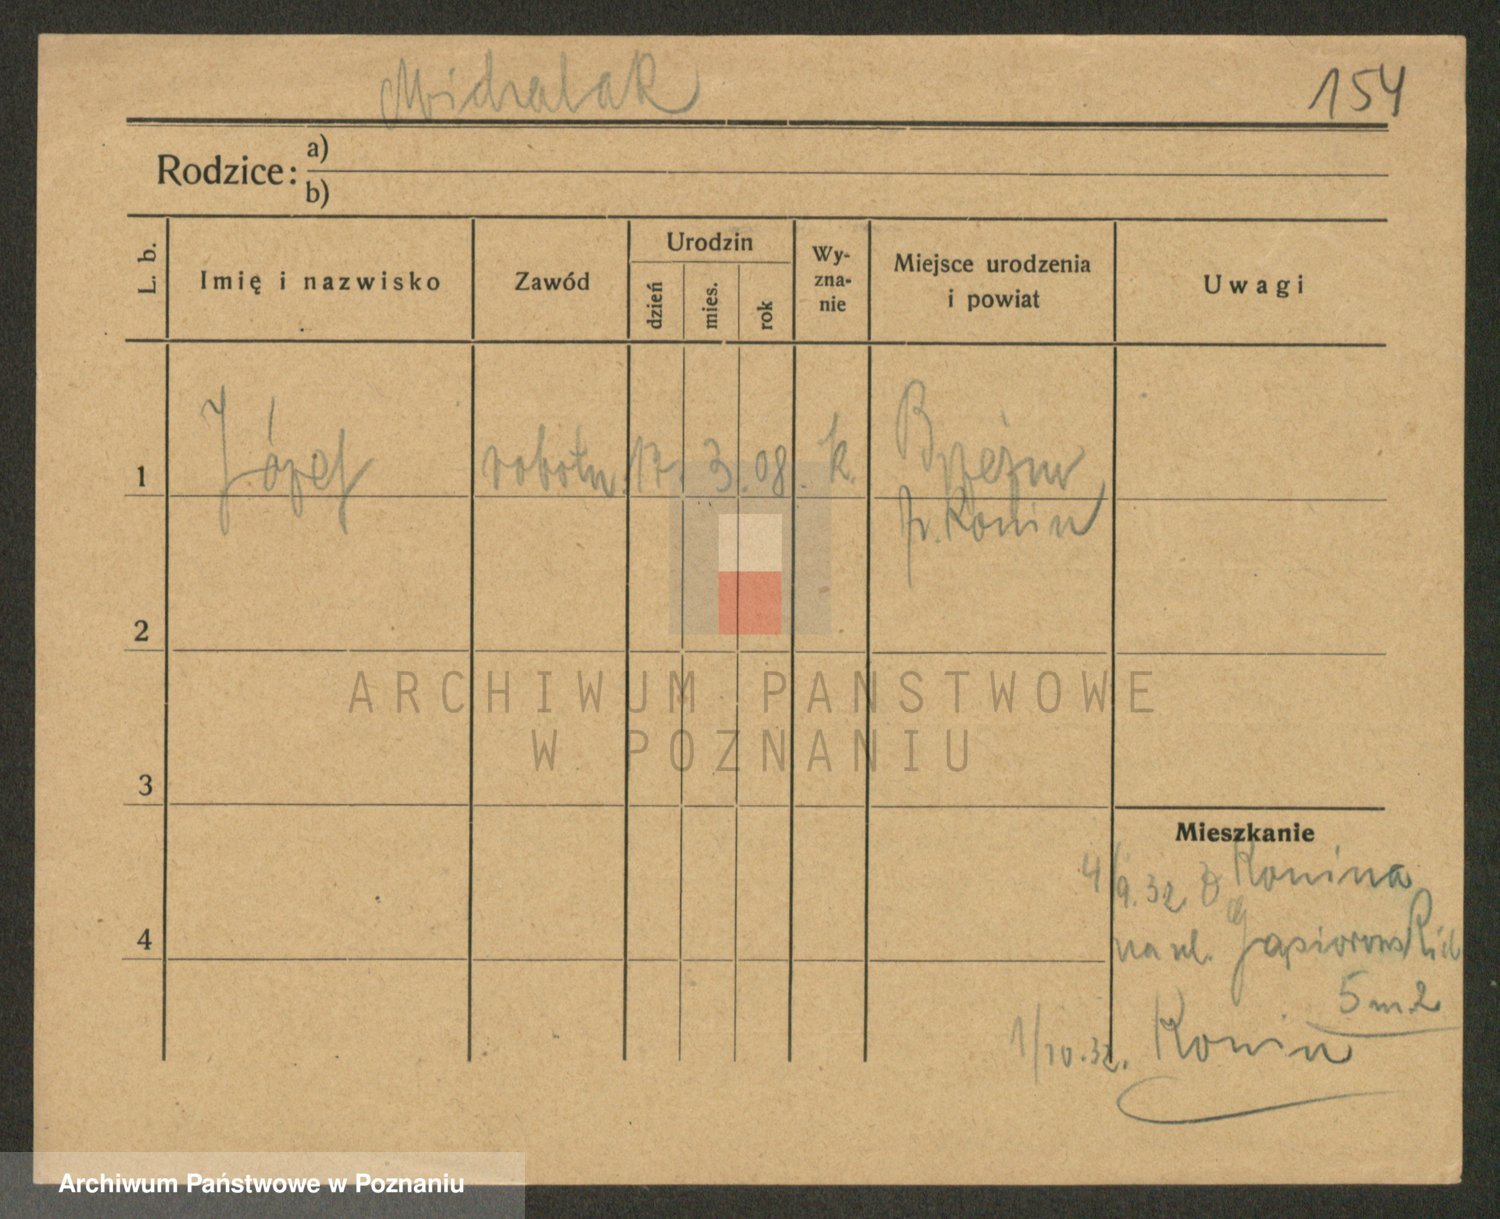 Michalak
154
Rodzice: a)
b)
L. b.
Imię i nazwisko
Zawód
Urodzin
dzień
mies.
rok
Wy-
zna-
nie
Miejsce urodzenia
i powiat
Uwagi
1
Józef
robotn.
17.
3.
08.
k.
Brzeźno
p. Konin
2
ARCHIWUM PAŃSTWOWE
W POZNANIU
3
Mieszkanie
4/9.32. z Konina
4
na ul. Gąsiorowskich
5 m 2
1/10.32. Konin
Archiwum Państwowe w Poznaniu